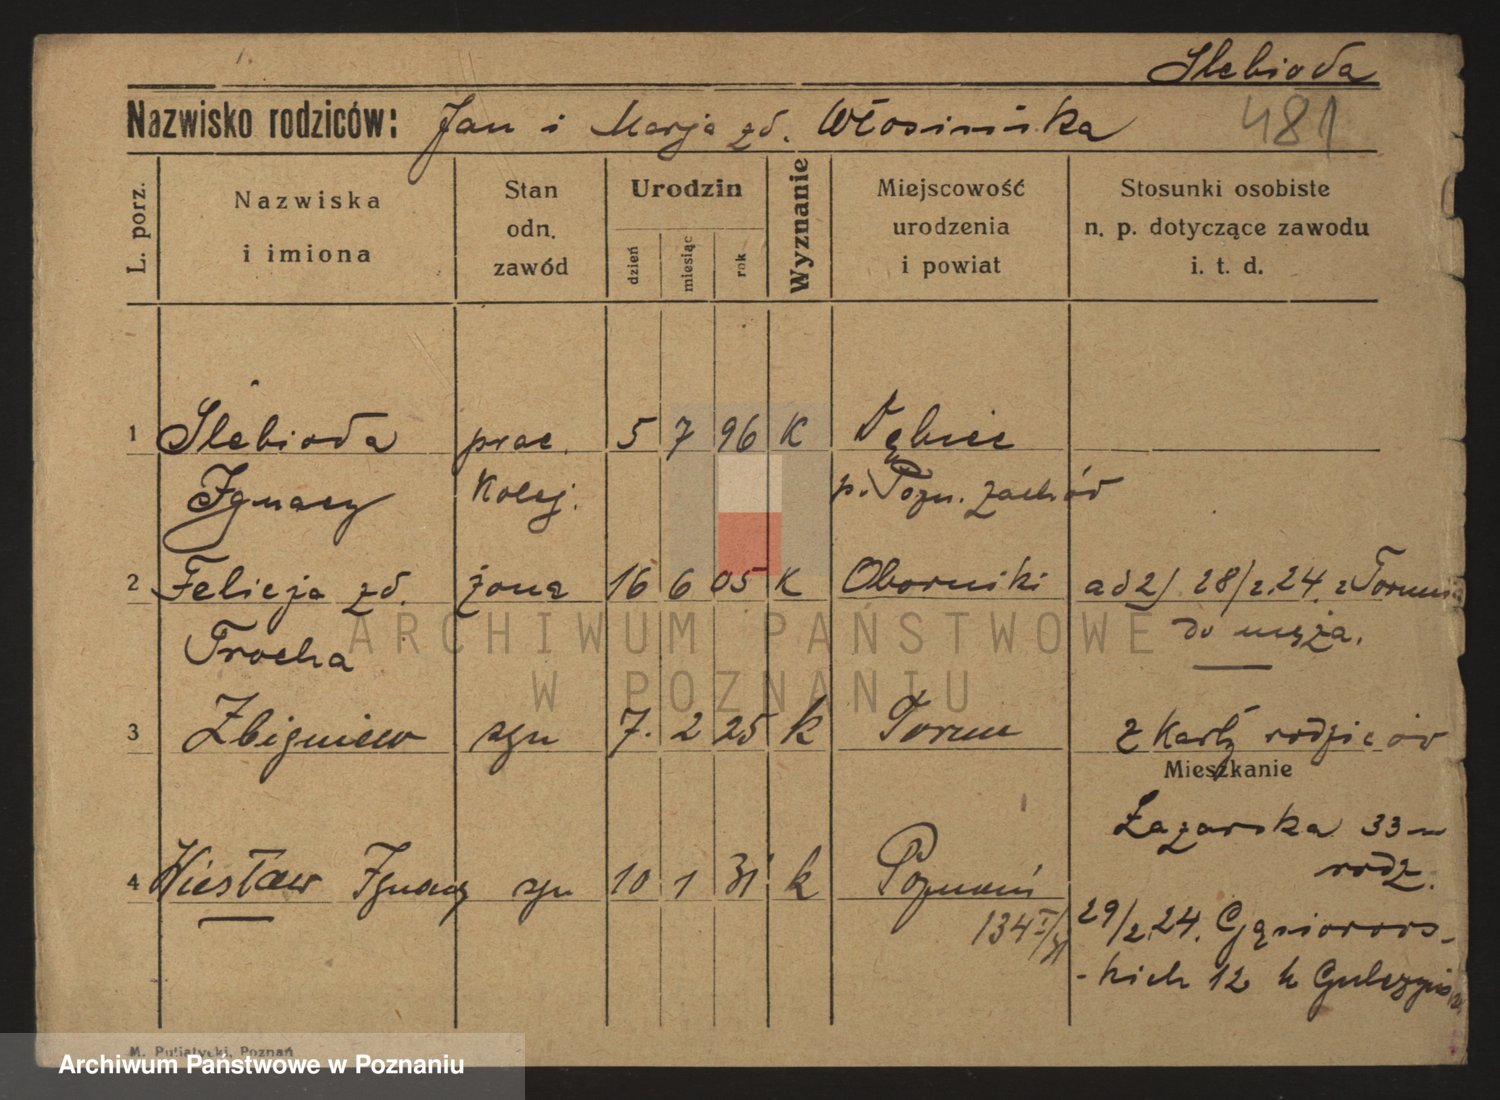 Slebioda
Nazwisko rodziców: Jan i Marja zd. Włosinska
481
L. porz.
Nazwiska
i imiona
Stan
odn.
zawód
Urodzin
dzień
miesiąc
rok
Wyznanie
Miejscowość
urodzenia
i powiat
Stosunki osobiste
n. p. dotyczące zawodu
i. t. d.
1 Slebioda prac. 5 7 96 K Dębiec
Ignacy kolej. p. Pozn. zachód
2 Felicja zd. żona 16 6 05 K Oborniki ad 2) 28/2.24. z Torunia
Trocha do męża.
3 Zbigniew syn 7. 2 25 k Toruń z Karty rodziców
Mieszkanie
Łazarska 33
rodz.
4 Wiesław Ignacy syn 10 1 31 k Poznań
134 I/31
29/2.24. Gąsiorows-
-kich 12
M. Putiatycki, Poznań
ARCHIWUM PAŃSTWOWE
W POZNANIU
Archiwum Państwowe w Poznaniu